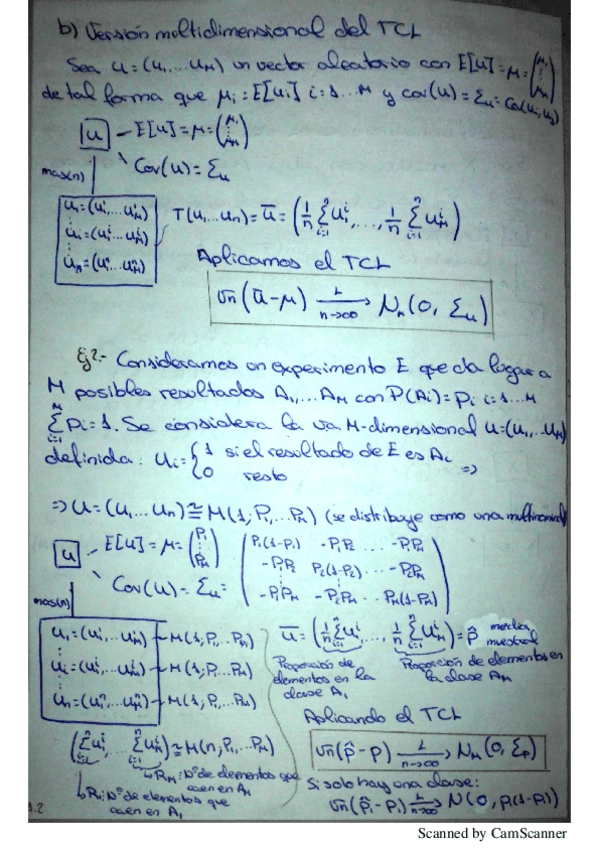 b) Versión multidimensional del TCL
Sea U=(U₁,...U_M) un vector aleatorio con E[U]=μ=(μ₁ ⋮ μ_M)
de tal forma que μᵢ=E[Uᵢ] i=1...M y cov(U)=Σ_U=Cov(Uᵢ,Uⱼ)
U – E[U]=μ=(μ₁ ⋮ μ_M)
Cov(U)=Σ_U
mas(n)
U₁=(U₁¹,...U_M¹)
Uᵢ=(U₁ⁱ,...U_Mⁱ)
⋮
U_n=(U₁ⁿ...U_Mⁿ)
T(U₁...U_n)=Ū=(1/n Σⁿᵢ₌₁ U₁ⁱ,...,1/n Σⁿᵢ₌₁ U_Mⁱ)
Aplicamos el TCL
√n(Ū-μ) —L→ n→∞ N_M(0, Σ_U)
Ej2.- Consideramos un experimento E que da lugar a
M posibles resultados A₁,...A_M con P(Aᵢ)=pᵢ i=1...M
Σᴹᵢ₌₁ pᵢ=1. Se considera la va M-dimensional U=(U₁,..U_M)
definida: Uᵢ={1 si el resultado de E es Aᵢ
0 resto ⇒
⇒ U=(U₁...U_n)≅M(1,P₁,...P_M) (se distribuye como una multinomial)
U – E[U]=μ=(P₁ ⋮ P_M)
Cov(U)=Σ_U=
P₁(1-P₁) -P₁P₂ .... -P₁P_M
-P₁P₂ P₂(1-P₂) ... -P₂P_M
-P₁P_M -P₂P_M... P_M(1-P_M)
mas(n)
U₁=(U₁¹,...U_M¹) – M(1,P₁,..P_M)
Uᵢ=(U₁ⁱ,...U_Mⁱ) – M(1,P₁,...P_M)
⋮
U_n=(U₁ⁿ,...U_Mⁿ) – M(1,P₁,...P_M)
Ū=(1/n Σⁿᵢ₌₁ U₁ⁱ,...,1/n Σⁿᵢ₌₁ U_Mⁱ)=p̂ media muestral
Proporción de
elementos en la
clase A₁
Proporción de elementos en
la clase A_M
Aplicando el TCL
(Σⁿᵢ₌₁ U₁ⁱ, ... Σⁿᵢ₌₁ U_Mⁱ)≅M(n,P₁,...P_M)
R_M: Nº de elementos que
caen en A_M
R₁: Nº de elementos que
caen en A₁
√n(p̂-p) —L→ n→∞ N_M(0, Σ_p)
Si solo hay una clase:
√n(p̂ᵢ-pᵢ) —L→ n→∞ N(0, pᵢ(1-pᵢ))
Scanned by CamScanner